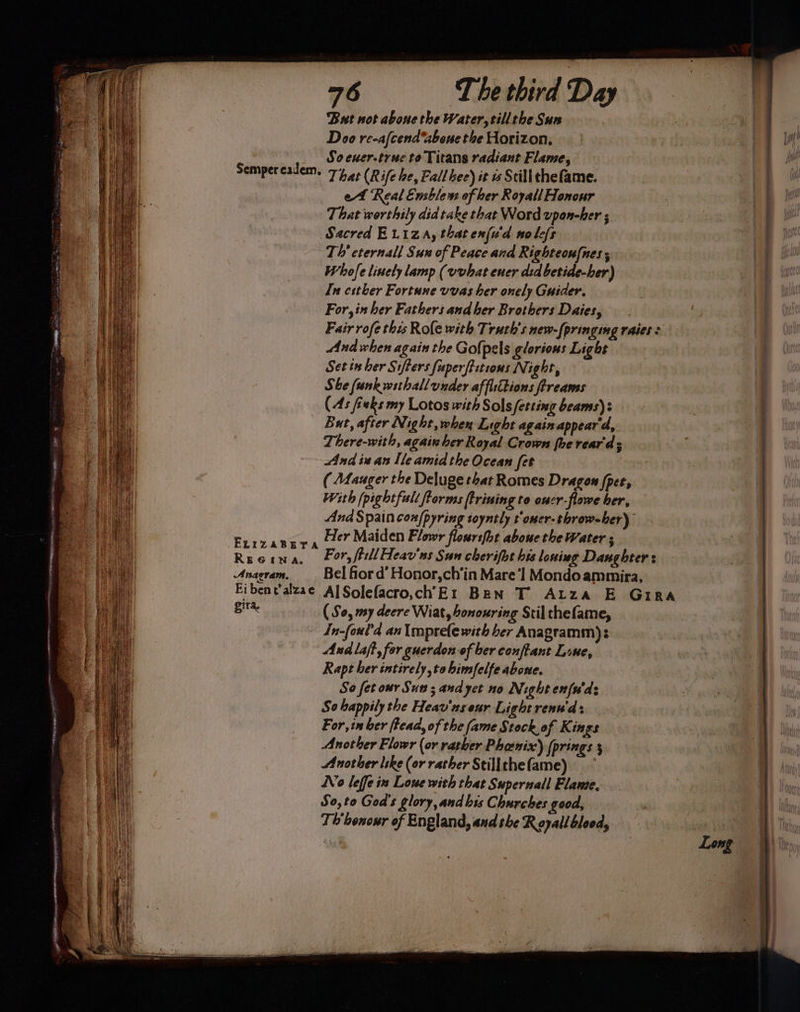 76 The third Day
But not aboue the Water, till the Sun
Doo re-ascend aboue the Horizon.
So euer-true to Titans radiant Flame,
Semper eadem. That (Rise he, Fall hee) it is Still the same.
A Real Emblem of her Royall Honour
That worthily did take that Word vpon-her;
Sacred ELIZA, that ensu'd no less
Th' eternall Sun of Peace and Righteousnes;
Whose liuely lamp (vvhat euer did betide-her)
In either Fortune vvas her onely Guider.
For, in her Fathers and her Brothers Daies,
Fair rose this Rose with Truth's new-springing raies:
And when again the Gospels glorious Light
Set in her Sisters superstitious Night,
She sunk withall vnder afflictions streams
(As sinks my Lotos with Sols setting beams):
But, after Night, when Light again appear'd,
There-with, again her Royal Crown she rear'd;
And in an Ile amid the Ocean set
(Mauger the Deluge that Romes Dragon spet,
With spightfull storms striuing to ouer-flowe her,
And Spain conspyring ioyntly t'ouer-throw-her)
ELIZABETA Her Maiden Flowr flourisht aboue the Water;
REGINA. For, still Heav'ns Sun cherisht his louing Daughter:
Anagram. Bel fiord' Honor, ch'in Mare'l Mondo ammira,
Ei ben t'alzae Al Sole sacro, ch'EI BEN T ALZA E GIRA
gira. (So, my deere Wiat, honouring Stil the same,
In-soul'd an Imprese with her Anagramm):
And last, for guerdon of her constant Loue,
Rapt her intirely, to himselfe aboue.
So set our Sun; and yet no Night ensu'd:
So happily the Heav'ns our Light renu'd:
For, in her stead, of the same Stock of Kings
Another Flowr (or rather Phœnix) springs;
Another like (or rather Still the same)
No lesse in Loue with that Supernall Flame.
So, to God's glory, and his Churches good,
Th' honour of England, and the Royall blood,
Long